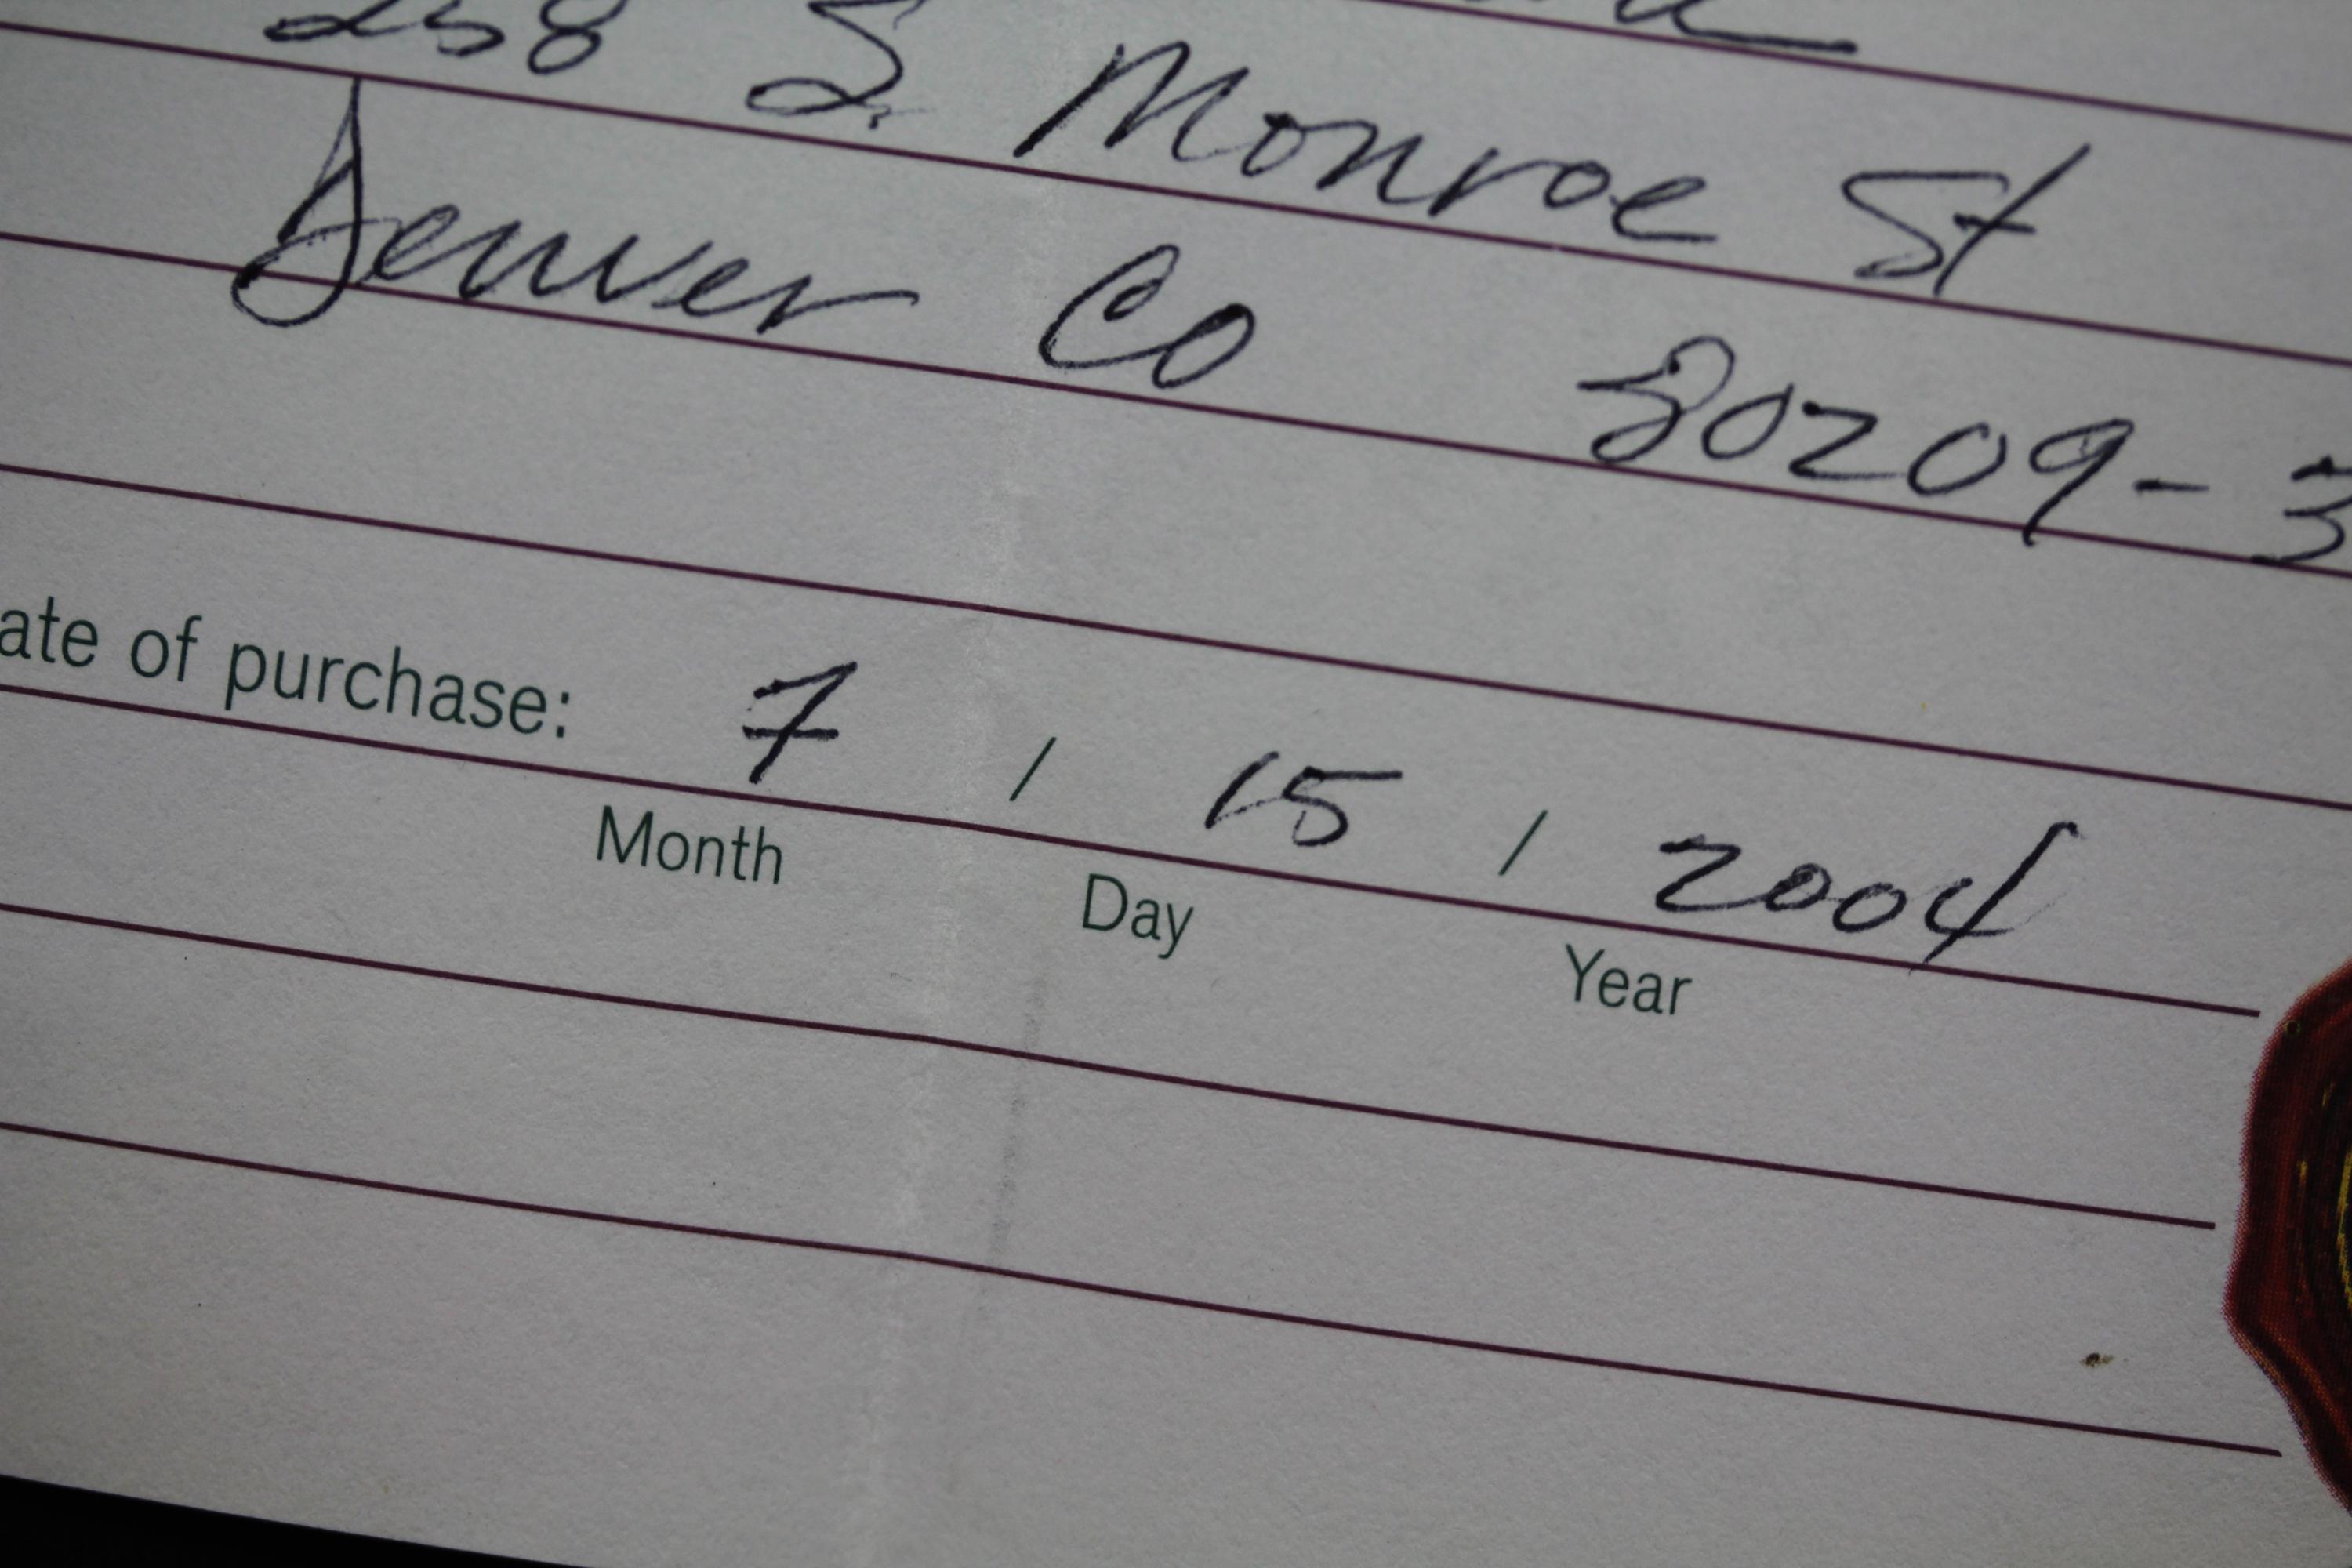 258 S. Monroe St
Denver Co 80209-3
ate of purchase: 7 / 15 / 2004
Month Day Year